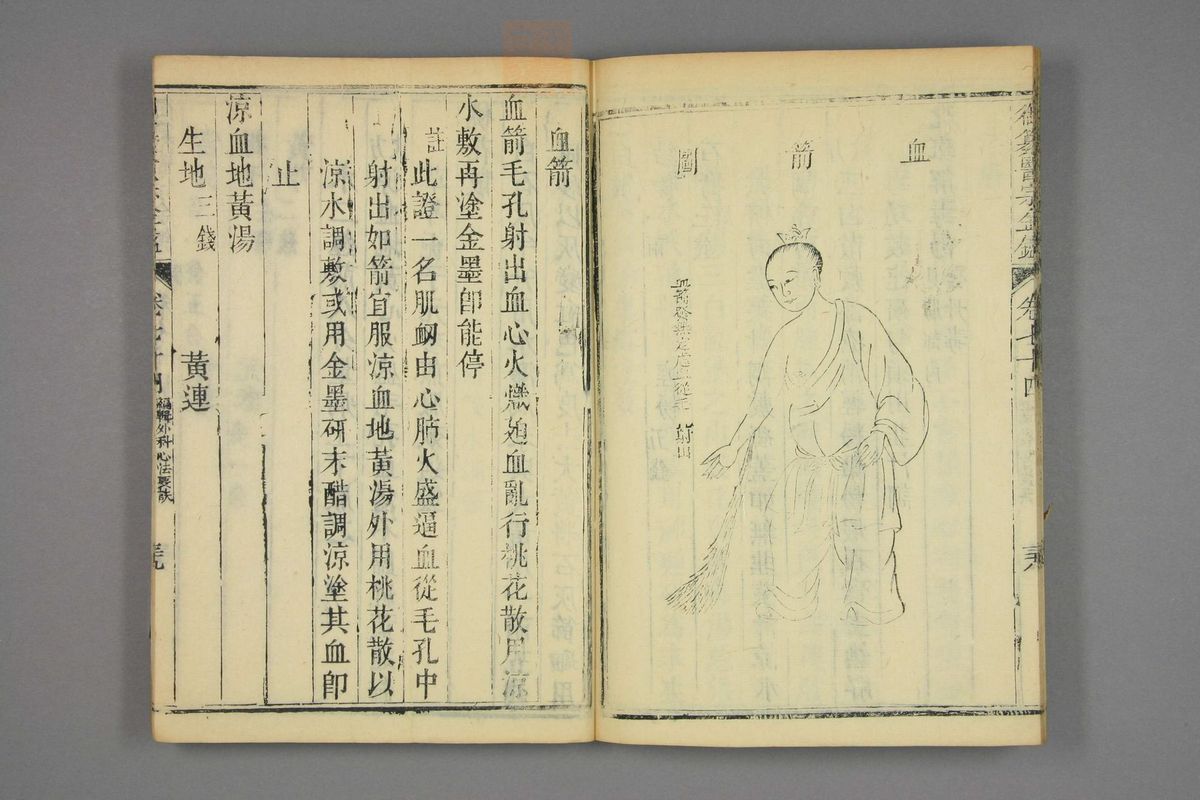 御纂醫宗金鑑
卷七十四
血箭圖
血箭發無定處血從毛孔射出
血箭
血箭毛孔射出血心火熾逈血亂行桃花散用涼
水敷再塗金墨卽能停
註此證一名肌衂由心肺火盛逼血從毛孔中
射出如箭宜服涼血地黃湯外用桃花散以
涼水調敷或用金墨研末醋調涼塗其血卽
止
涼血地黃湯
生地三錢 黃連
卷七十四 編輯外科心法要訣